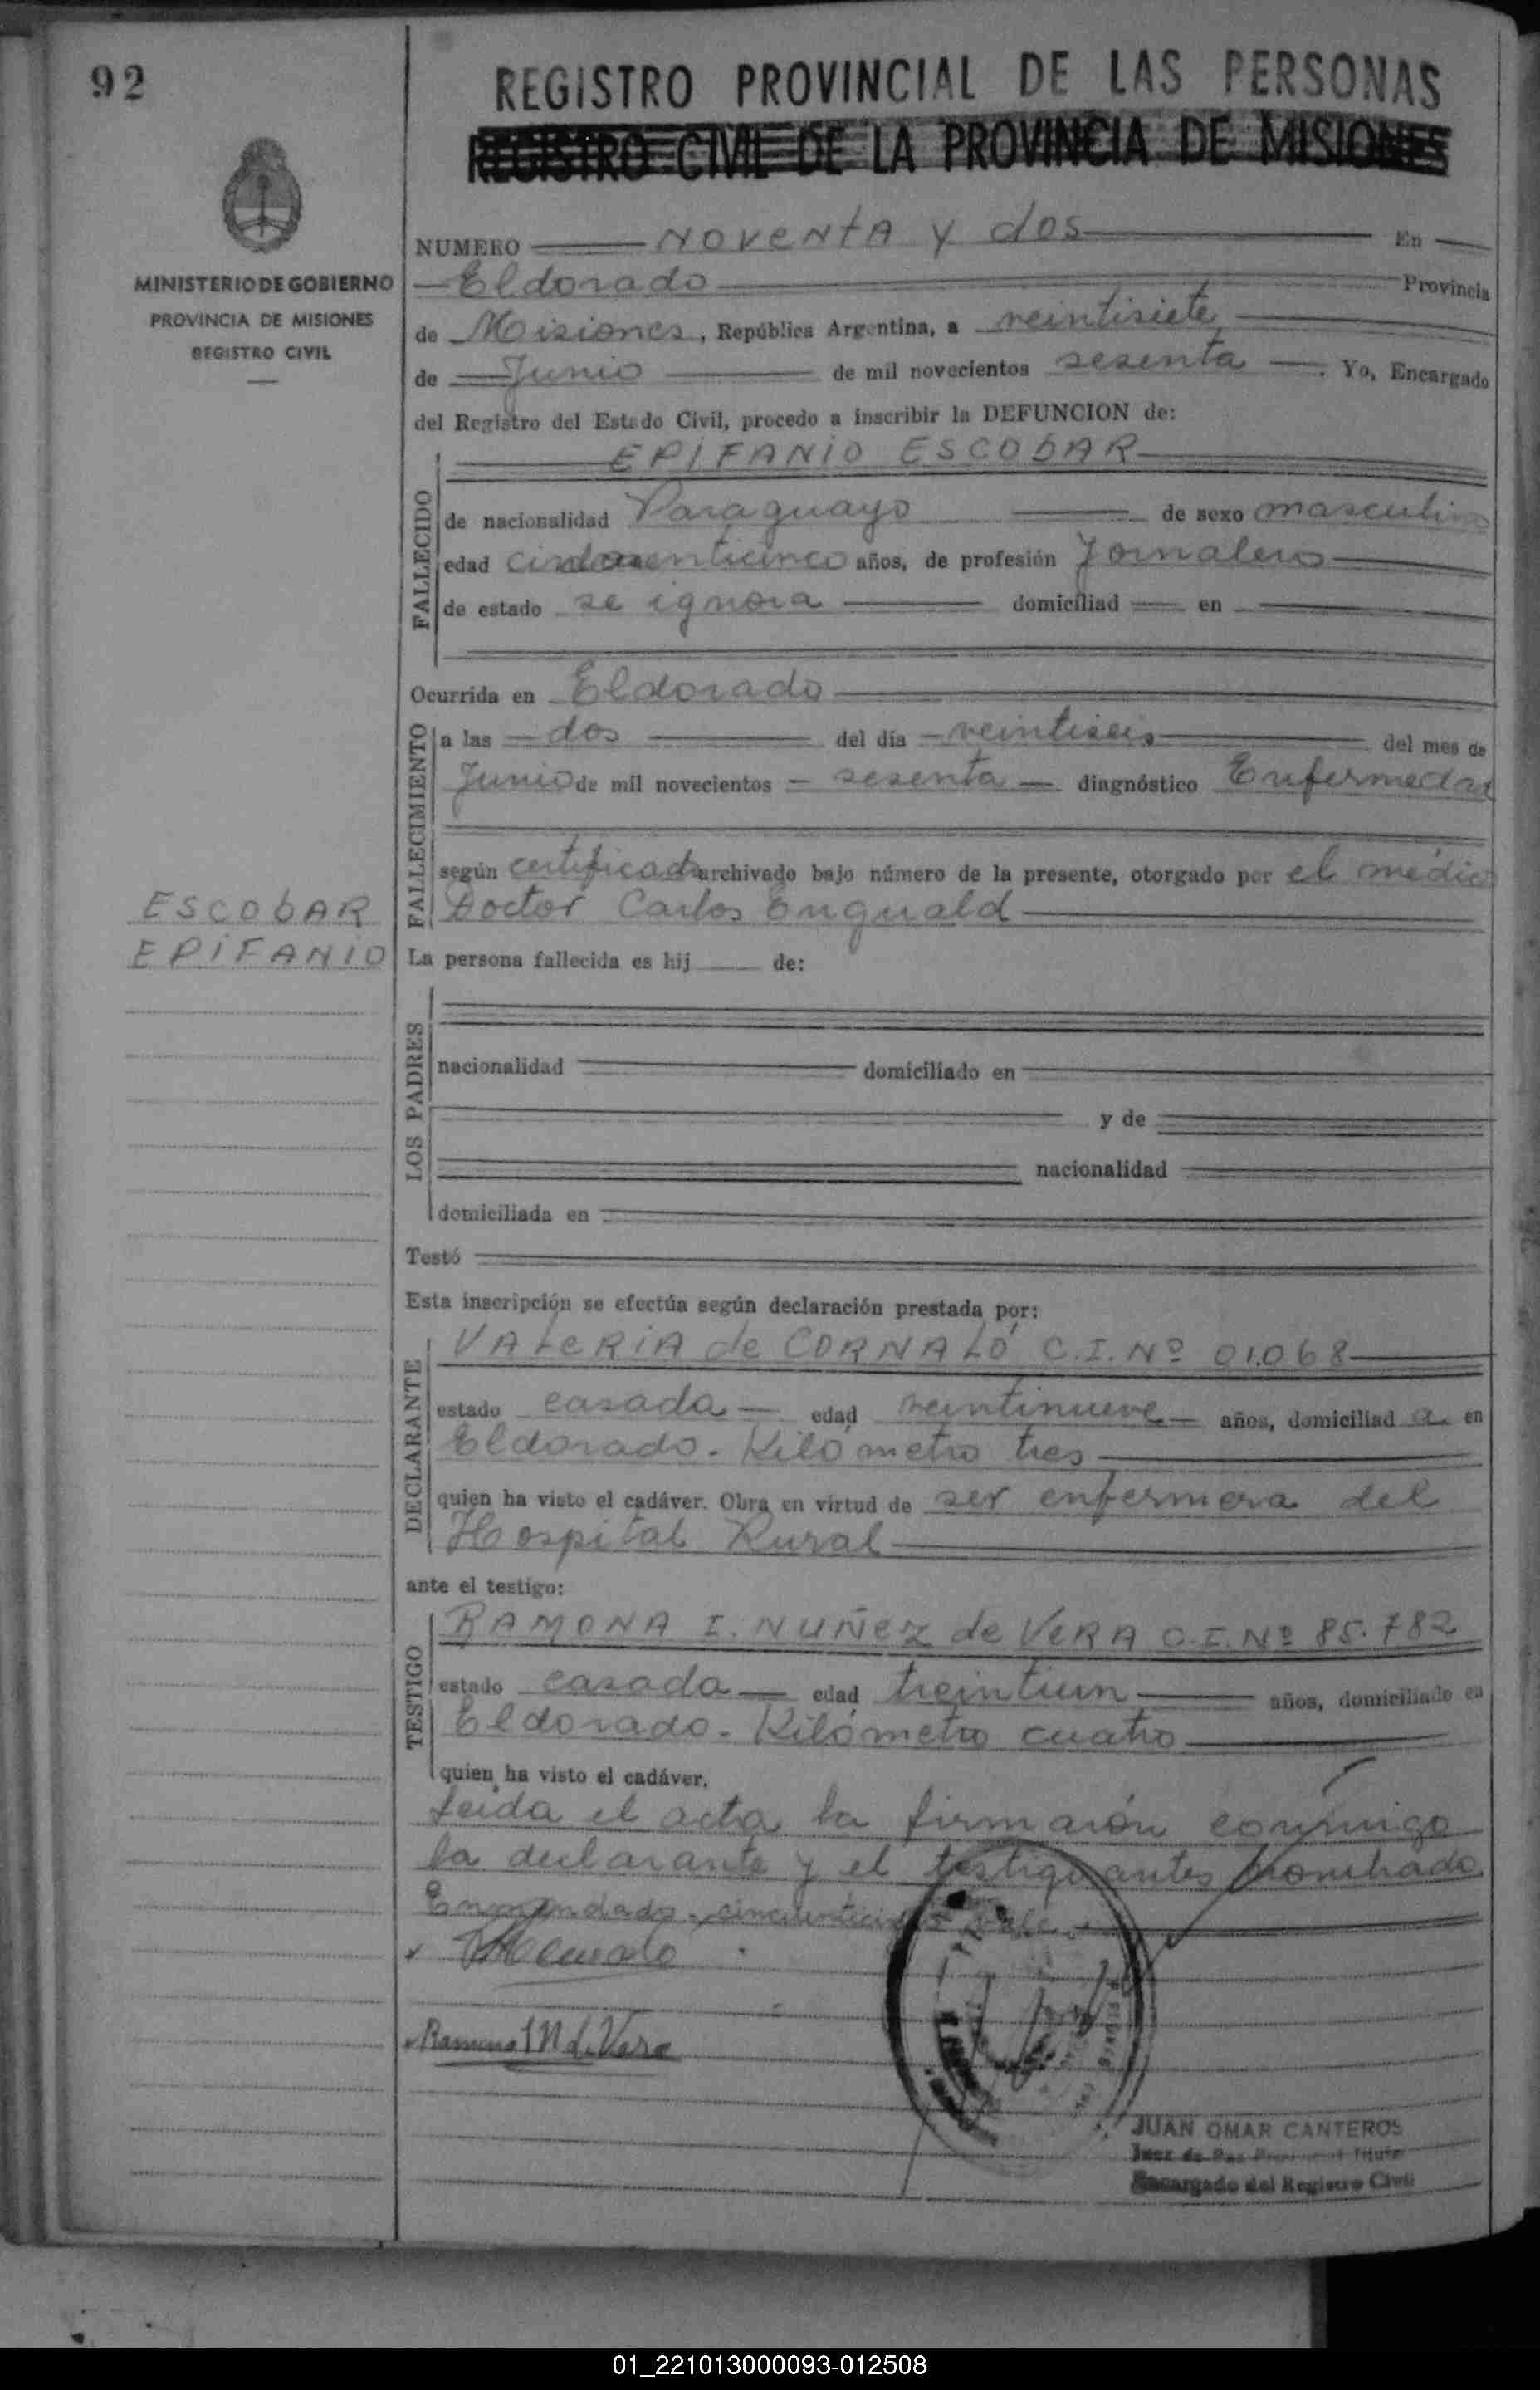 92
REGISTRO PROVINCIAL DE LAS PERSONAS
REGISTRO CIVIL DE LA PROVINCIA DE MISIONES
MINISTERIO DE GOBIERNO
PROVINCIA DE MISIONES
REGISTRO CIVIL
NUMERO NOVENTA Y dos En
Eldorado Provincia
de Misiones, República Argentina, a veintisiete
de Junio de mil novecientos sesenta. Yo, Encargado
del Registro del Estado Civil, procedo a inscribir la DEFUNCION de:
EPIFANIO ESCOBAR
FALLECIDO
de nacionalidad Paraguayo de sexo masculino
edad cincuenticinco años, de profesión Jornalero
de estado se ignora domiciliad en
Ocurrida en Eldorado
FALLECIMIENTO
a las dos del día veintiseis del mes de
Junio de mil novecientos sesenta diagnóstico Enfermedad
según certificado archivado bajo número de la presente, otorgado por el médico
Doctor Carlos Enguald
ESCOBAR
EPIFANIO
La persona fallecida es hij de:
LOS PADRES
nacionalidad domiciliado en
y de
nacionalidad
domiciliada en
Testó
Esta inscripción se efectúa según declaración prestada por:
DECLARANTE
VALERIA de CORNALÓ C.I. Nº 01.068
estado casada edad veintinueve años, domiciliad a en
Eldorado. Kilómetro tres
quien ha visto el cadáver. Obra en virtud de ser enfermera del
Hospital Rural
ante el testigo:
TESTIGO
RAMONA I. NUÑEZ de VERA C.I. Nº 85.782
estado casada edad treintiun años, domiciliado en
Eldorado. Kilómetro cuatro
quien ha visto el cadáver.
Leida el acta la firmarón conmigo
la declarante y el testigo antes nombrado
Enmendado cincuenticinco vale.
Ramona I N de Vera
JUAN OMAR CANTEROS
Juez de Paz
Encargado del Registro Civil
01_221013000093-012508